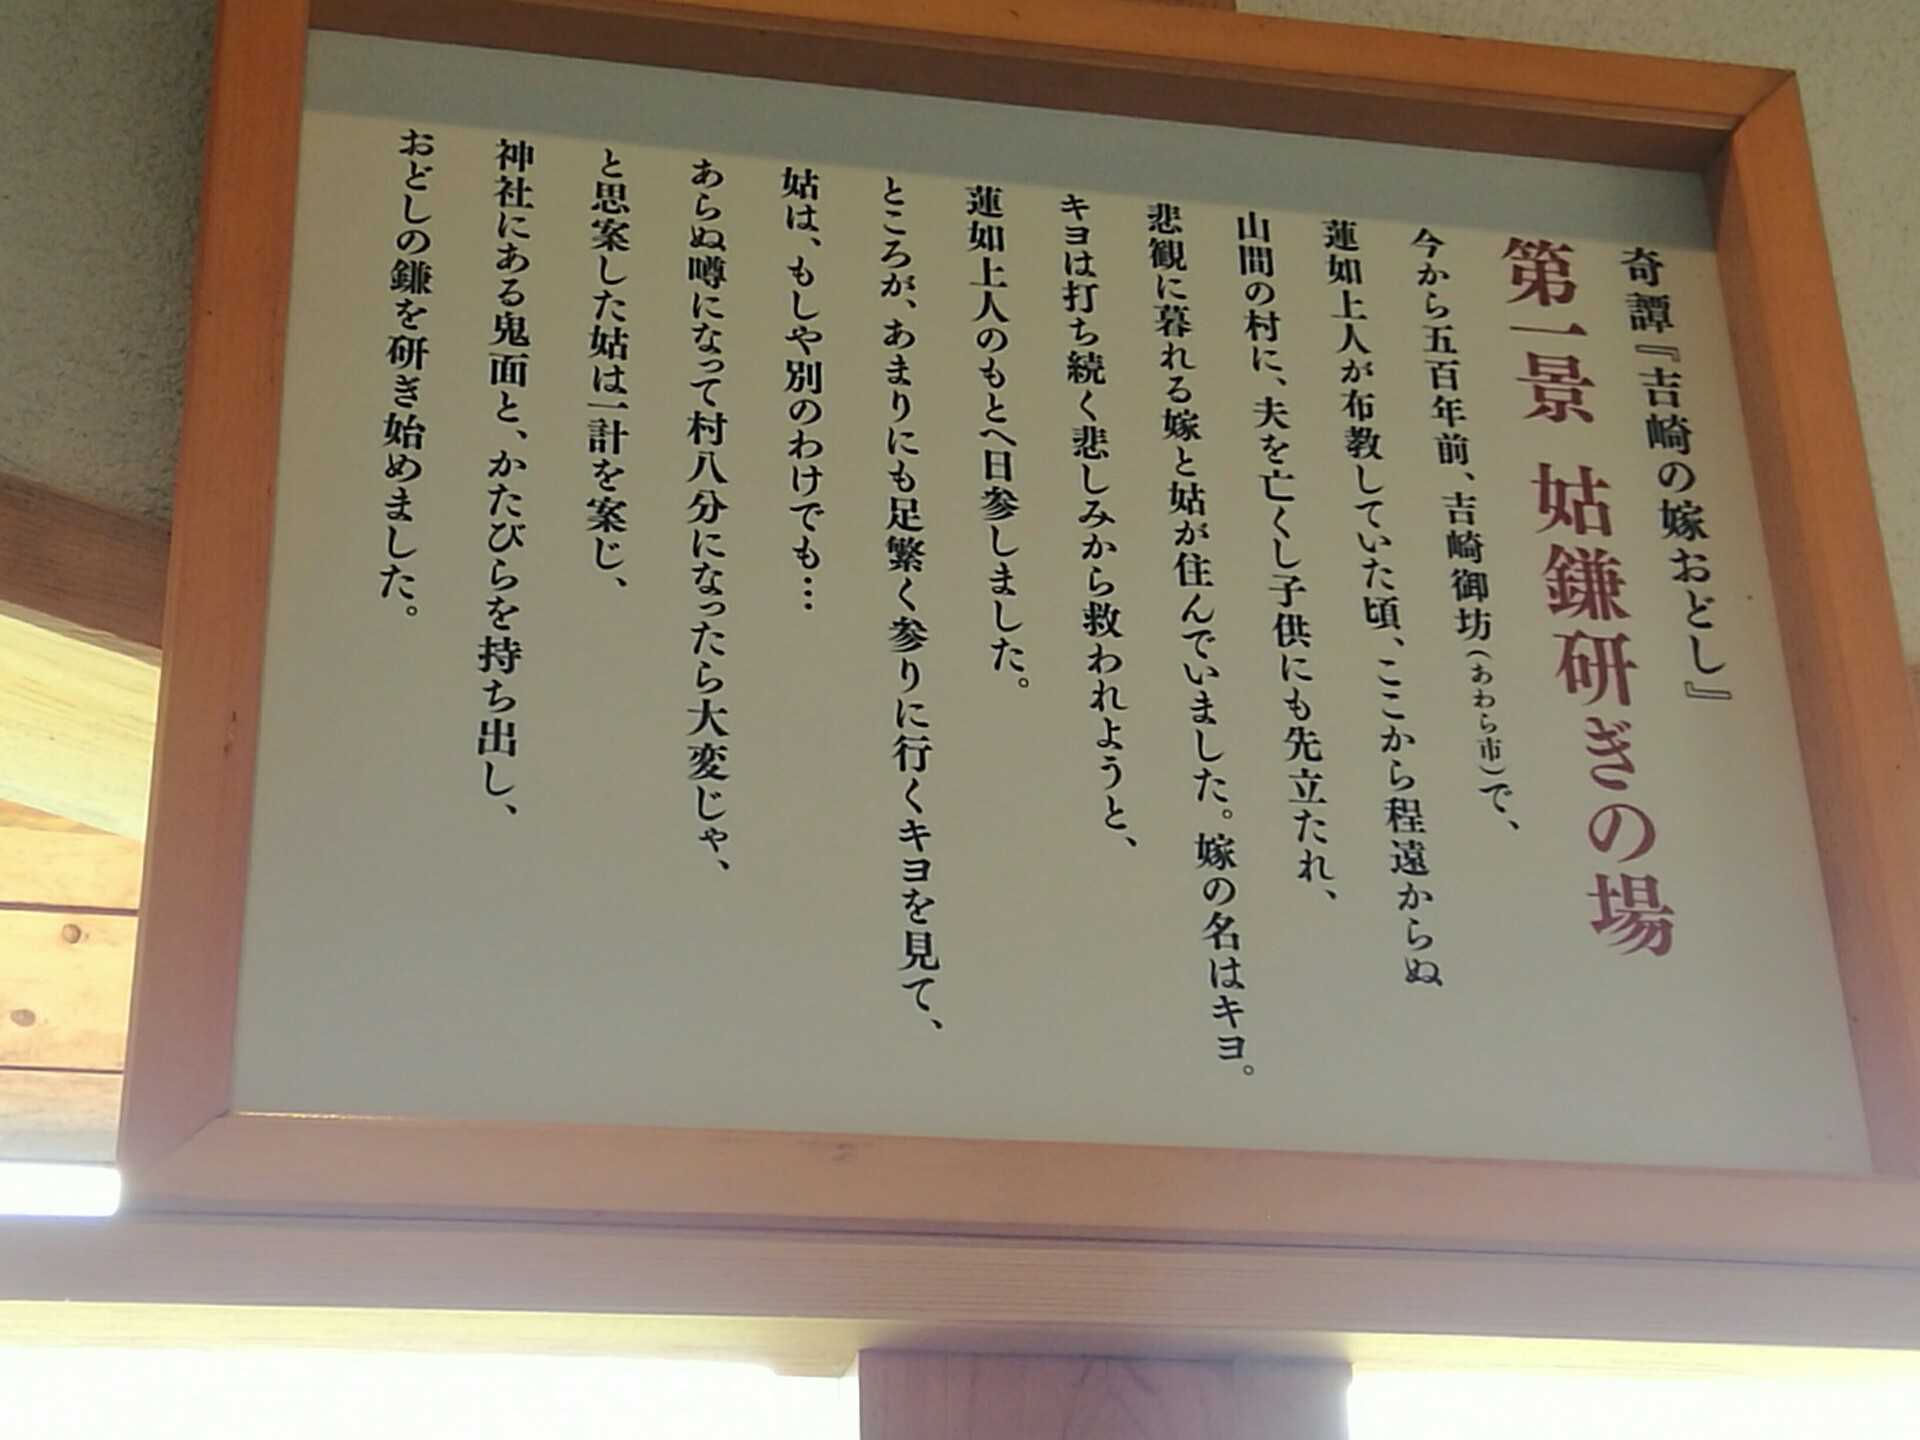 奇譚『吉崎の嫁おどし』
第一景 姑鎌研ぎの場
今から五百年前、吉崎御坊(あわら市)で、
蓮如上人が布教していた頃、ここから程遠からぬ
山間の村に、夫を亡くし子供にも先立たれ、
悲観に暮れる嫁と姑が住んでいました。嫁の名はキヨ。
キヨは打ち続く悲しみから救われようと、
蓮如上人のもとへ日参しました。
ところが、あまりにも足繁く参りに行くキヨを見て、
姑は、もしや別のわけでも…
あらぬ噂になって村八分になったら大変じゃ、
と思案した姑は一計を案じ、
神社にある鬼面と、かたびらを持ち出し、
おどしの鎌を研ぎ始めました。